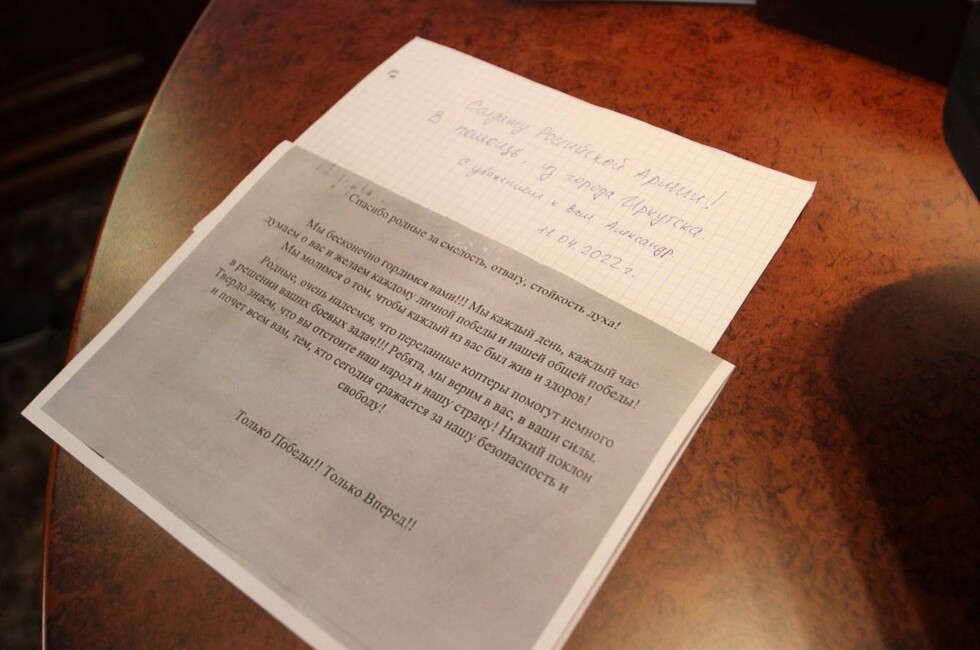 Солдату Российской Армии!
В помощь, из города Иркутска.
С уважением к вам Александр
11.04.2022 г.
Спасибо родные за смелость, отвагу, стойкость духа!
Мы бесконечно гордимся вами!!! Мы каждый день, каждый час
думаем о вас и желаем каждому личной победы и нашей общей победы!
Мы молимся о том, чтобы каждый из вас был жив и здоров!
Родные, очень надеемся, что переданные коптеры помогут немного
в решении ваших боевых задач!!! Ребята, мы верим в вас, в ваши силы.
Твердо знаем, что вы отстоите наш народ и нашу страну! Низкий поклон
и почет всем вам, тем, кто сегодня сражается за нашу безопасность и
свободу!
Только Победы!! Только Вперед!!